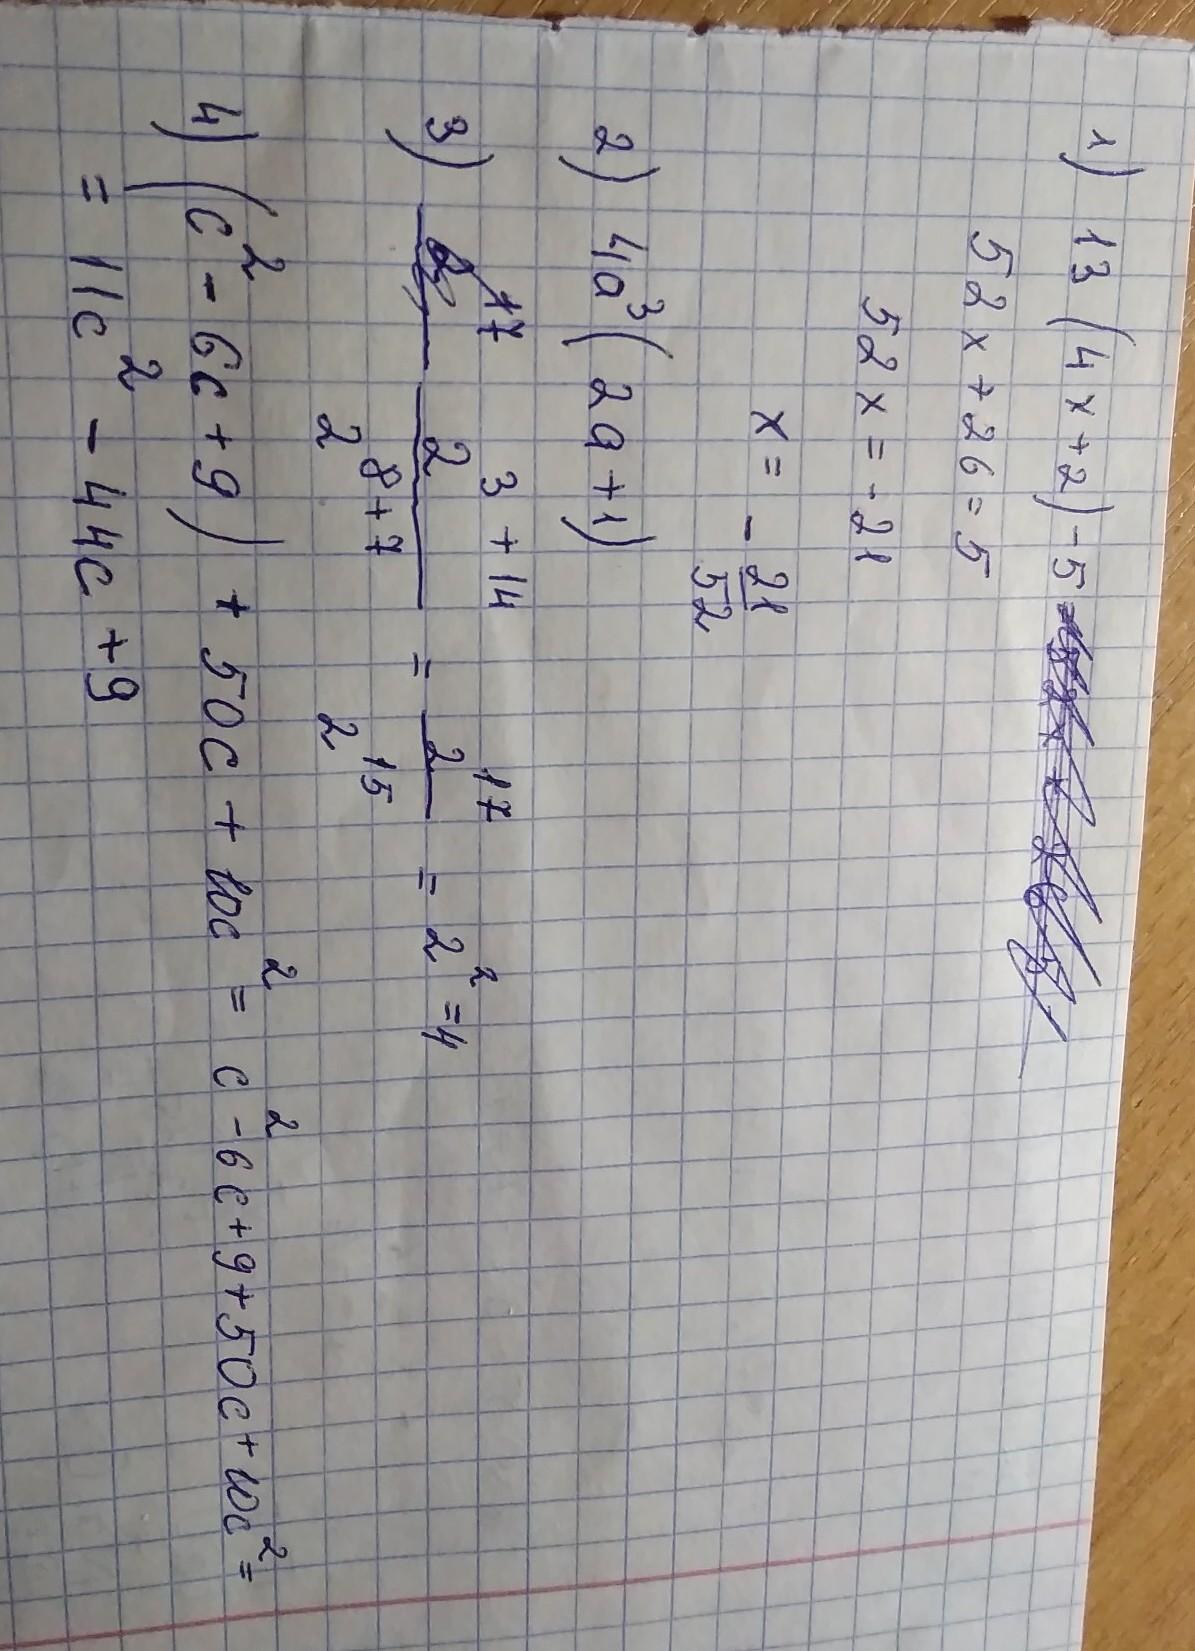 1) 13 (4x+2) - 5
52x + 26 = 5
52x = - 21
x = - 21/52
2) 4a³ ( 2a + 1)
3) 2³⁺¹⁴/2⁸⁺⁷ = 2¹⁷/2¹⁵ = 2² = 4
4) (c² - 6c + 9) + 50c + 10c² = c² - 6c + 9 + 50c + 10c² =
= 11c² - 44c + 9